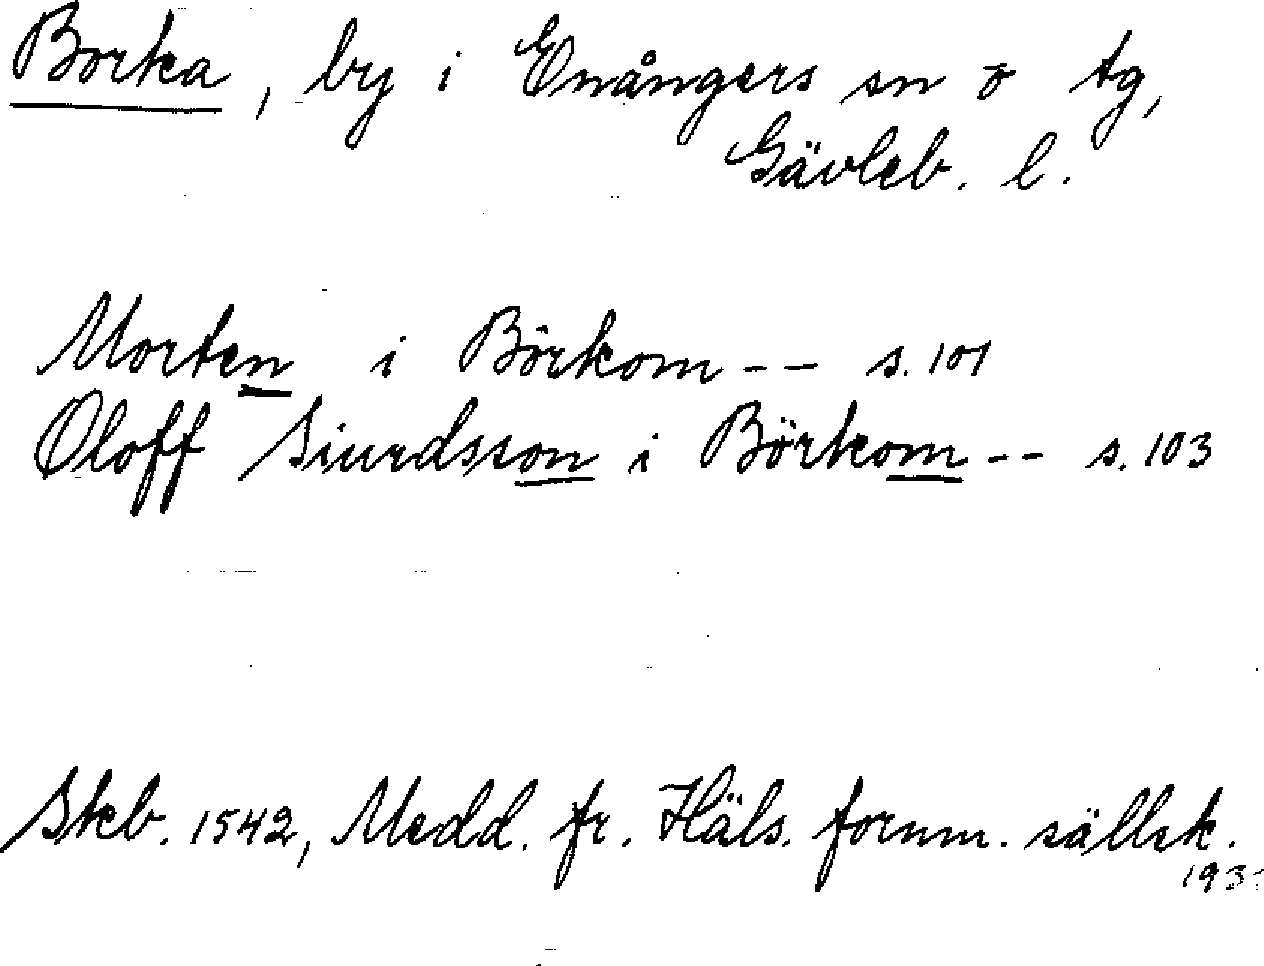 Borka, by i Enångers sn o tg,
Gävleb. l.
Morten i Börkom -- s. 101
Oloff Siurdsson i Börkom -- s. 103
Skb. 1542, Medd. fr. Häls. fornm. sällsk.